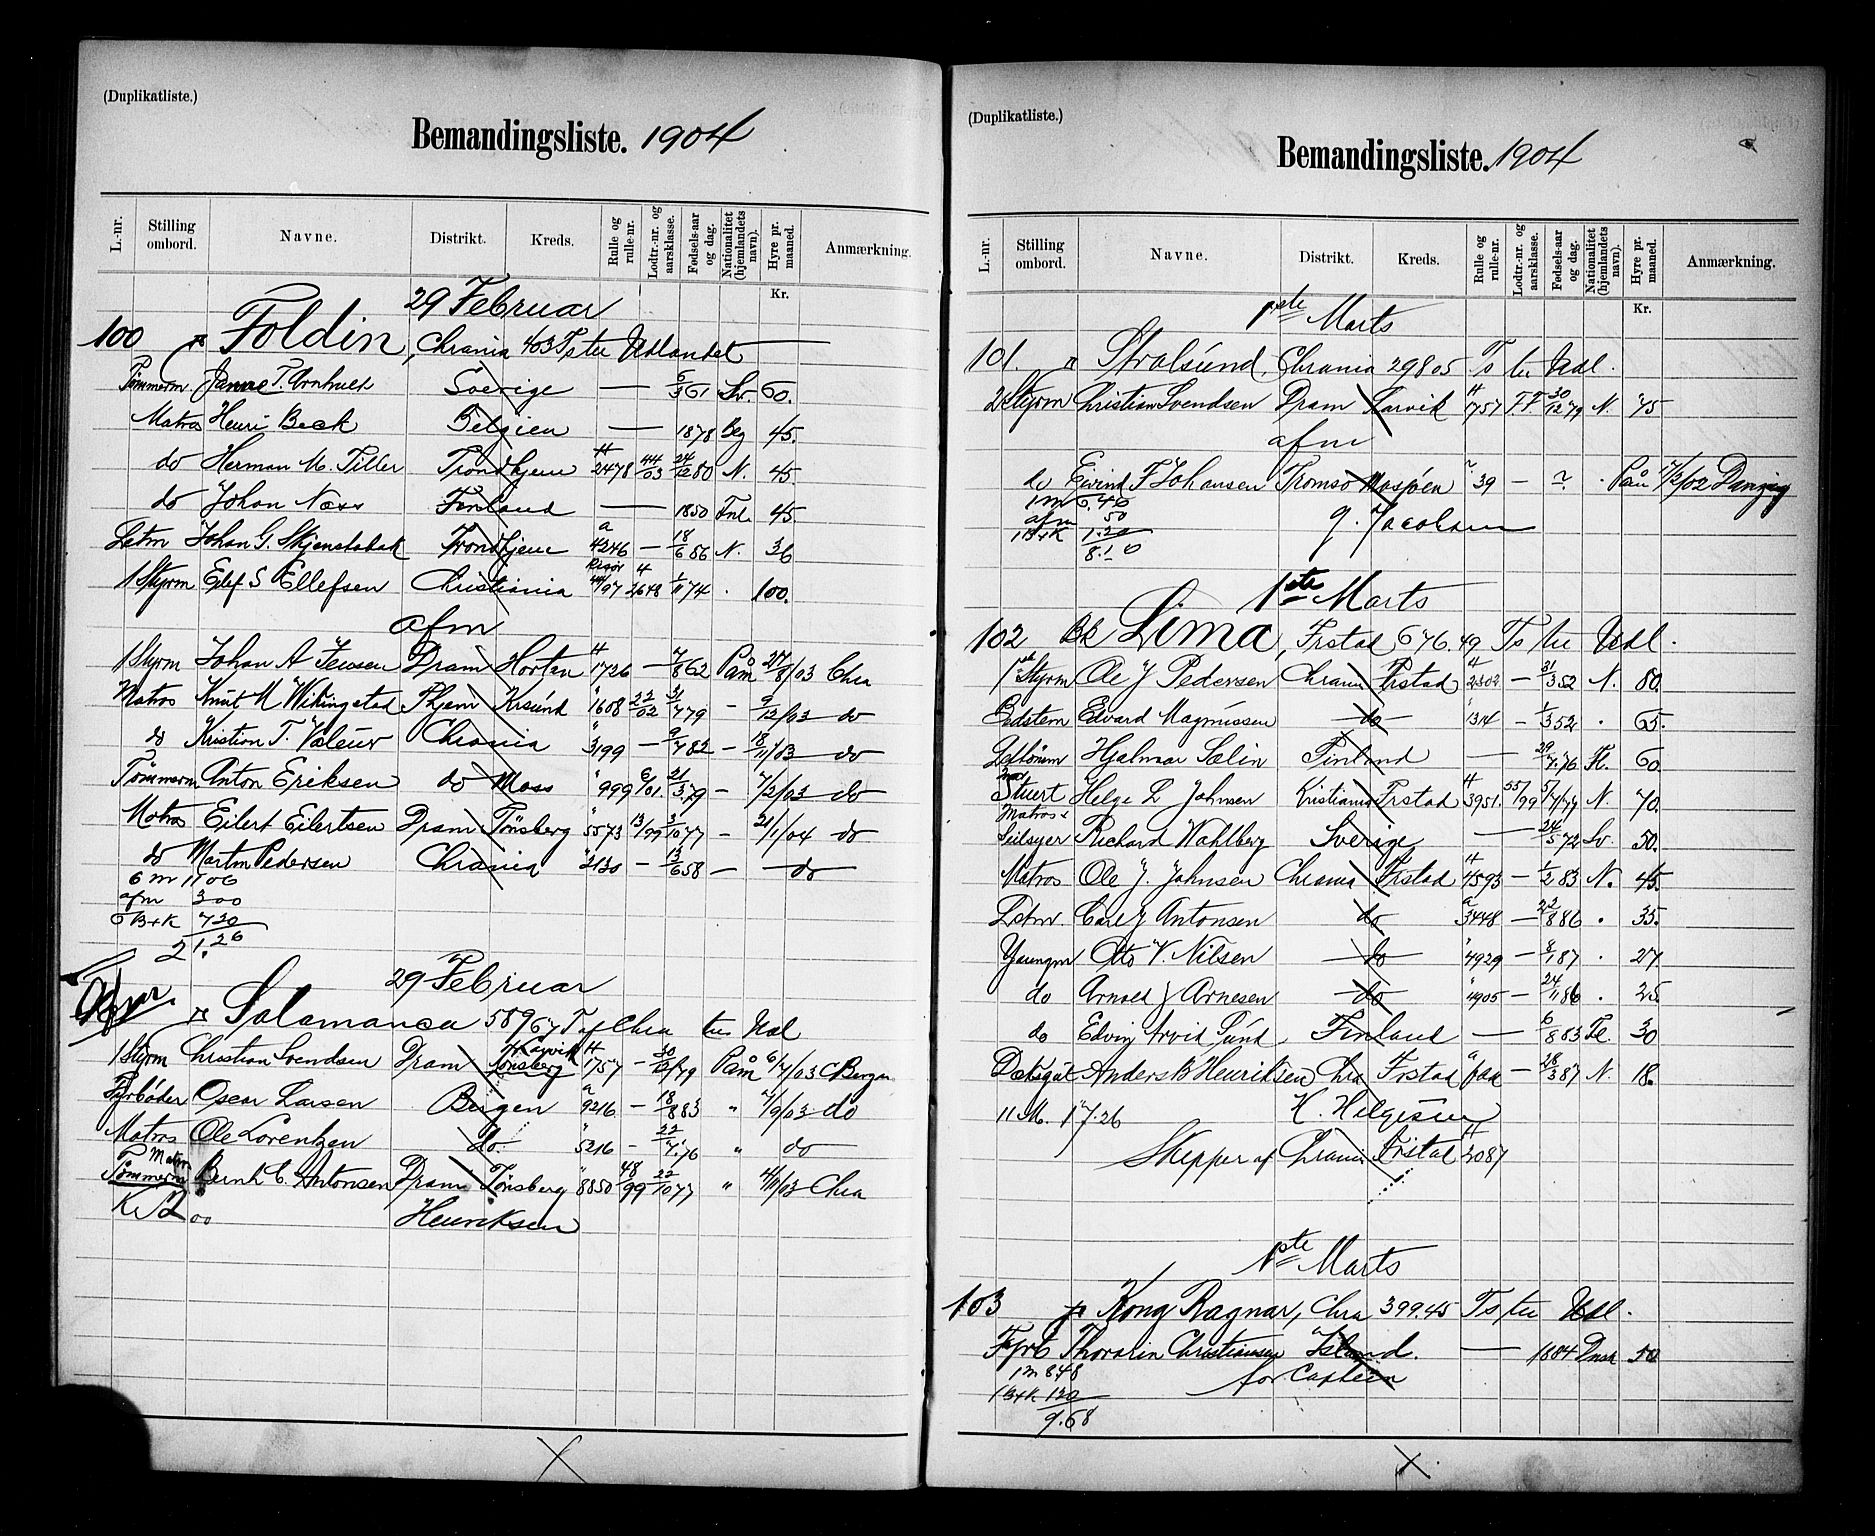 (Duplikatliste.)
Bemandingsliste. 1904
L.-nr. Stilling ombord. Navne. Distrikt. Kreds. Rulle og rulle-nr. Lodtr.-nr. og aarsklasse. Fødsels-aar og dag. Nationalitet (hjemlandets navn). Hyre pr. maaned. Anmærkning.
Kr.
29 Februar
100 Foldin, Chrania 403 Ts til Udlandet
Tømmerm. Janne T. Sverige — 61 Sv. 60.
Matros Henri Beck Belgien — 1878 Belg 45.
do Herman M. Tiller Trondhjem 2478 44/03 24/12 80 N. 45.
do Johan Næss Finland — 1850 Fnl. 45.
Letm Johan G. Trondhjem a 4246 — 18/6 86 N. 36
1 Styrm Elef S Ellefsen Christiania 2648 1/11 74 . 100.
afm
1 Styrm Johan A Jensen Dram Horten 1726 — 7/8 62 Påm 27/8/03 Chra
Matros Knut M Wikingstad Thjem Krsund " 1608 22/02 31/7 79 — 9/12/03 do
do Kristian T. Chrania " 3199 — 9/7 82 — 18/11/03 do
Tømmerm Anton Eriksen do Moss " 999 6/01. 21/3 79 — 7/2/03 do
Matros Eilert Eilertsen Dram Tønsberg " 5573 13/99 3/10 77 — 21/1/04 do
do Martin Pedersen Chrania " 2130 — 13/6 58 — — do
6 m 11 06
afm 3 00
6 B+K 7 20
21.26
29 Februar
Salamanca 589 67 T af Chra til Udl
1 Styrm Christian Svendsen Dram Larvik Tønsberg 1757 — 30/12/79 Påm 6/7/03 Bergen
Fyrbøder Oscar Larsen Bergen a 9216 — 18/8 83 " 7/9/03 do
Matros Ole Lorentzen do " 5216 — 22/7 76 " do
Matros
Tømmerm Bernh C. Antonsen Dram Tønsberg " 8850 48/99 22/10 77 " Chra
00 Henriksen
(Duplikatliste.)
Bemandingsliste. 1904
L.-nr. Stilling ombord. Navne. Distrikt. Kreds. Rulle og rulle-nr. Lodtr.-nr. og aarsklasse. Fødsels-aar og dag. Nationalitet (hjemlandets navn). Hyre pr. maaned. Anmærkning.
Kr.
1ste Marts
101. Stralsund, Chrania 298 05 Ts til Udl.
2 Styrm Christian Svendsen Dram Larvik 1757 FF 30/12 79 N. 75
afm
do Eivind F Johansen Tromsø Mosjøen 39 — ? . Påm 7/2/02 Danzig
1 m 6.40
afm 50
1 B+K 1.20
8.10
J. Jacobsen
1ste Marts
102 Bk Lima, Frstad 676.49 Ts til Udl.
1ste Styrm Ole J Pedersen Chrania Frstad 2302 — 31/3 52 N. 80.
Bedstem Edvard Magnussen do " 1314 — 1/3 52 . 65.
Hjalmar Salin Finland — 29/7 76 Fl. 60.
Stuert Helge L Johnsen Kristiania Frstad 3951. 55/99 5/7/77 N. 70.
Matros &
Seilsyer Richard Wahlberg Sverige — 24/5 72 Sv. 50.
Matros Ole J. Johnsen Chrania Frstad 4593 — 1/2 83 N. 45.
Letm. Carl J Antonsen do a 3448 — 22/8 86 . 35.
Youngm Otto V. Nilsen do " 4929 — 8/1 87 . 27.
do Arnold J Arnesen do " 4905 — 24/11 86 . 25.
do Edvin Arvid Sund Finland — 6/8 83 Fl. 30
Dæksgut Anders B Henriksen Chra Frstad a — 28/3 87 N. 18.
11 M. 17.26 H. Helgesen
Skipper af Chrania Frstad 2087
1ste Marts
103 Kong Ragnar, Chra 399.45 Ts til Udl.
Fyrb Thorarin Christiansen Island. — 1884 Dnsk 50
1 m 8.48
1 B+K 1 20
9.68
for Captein